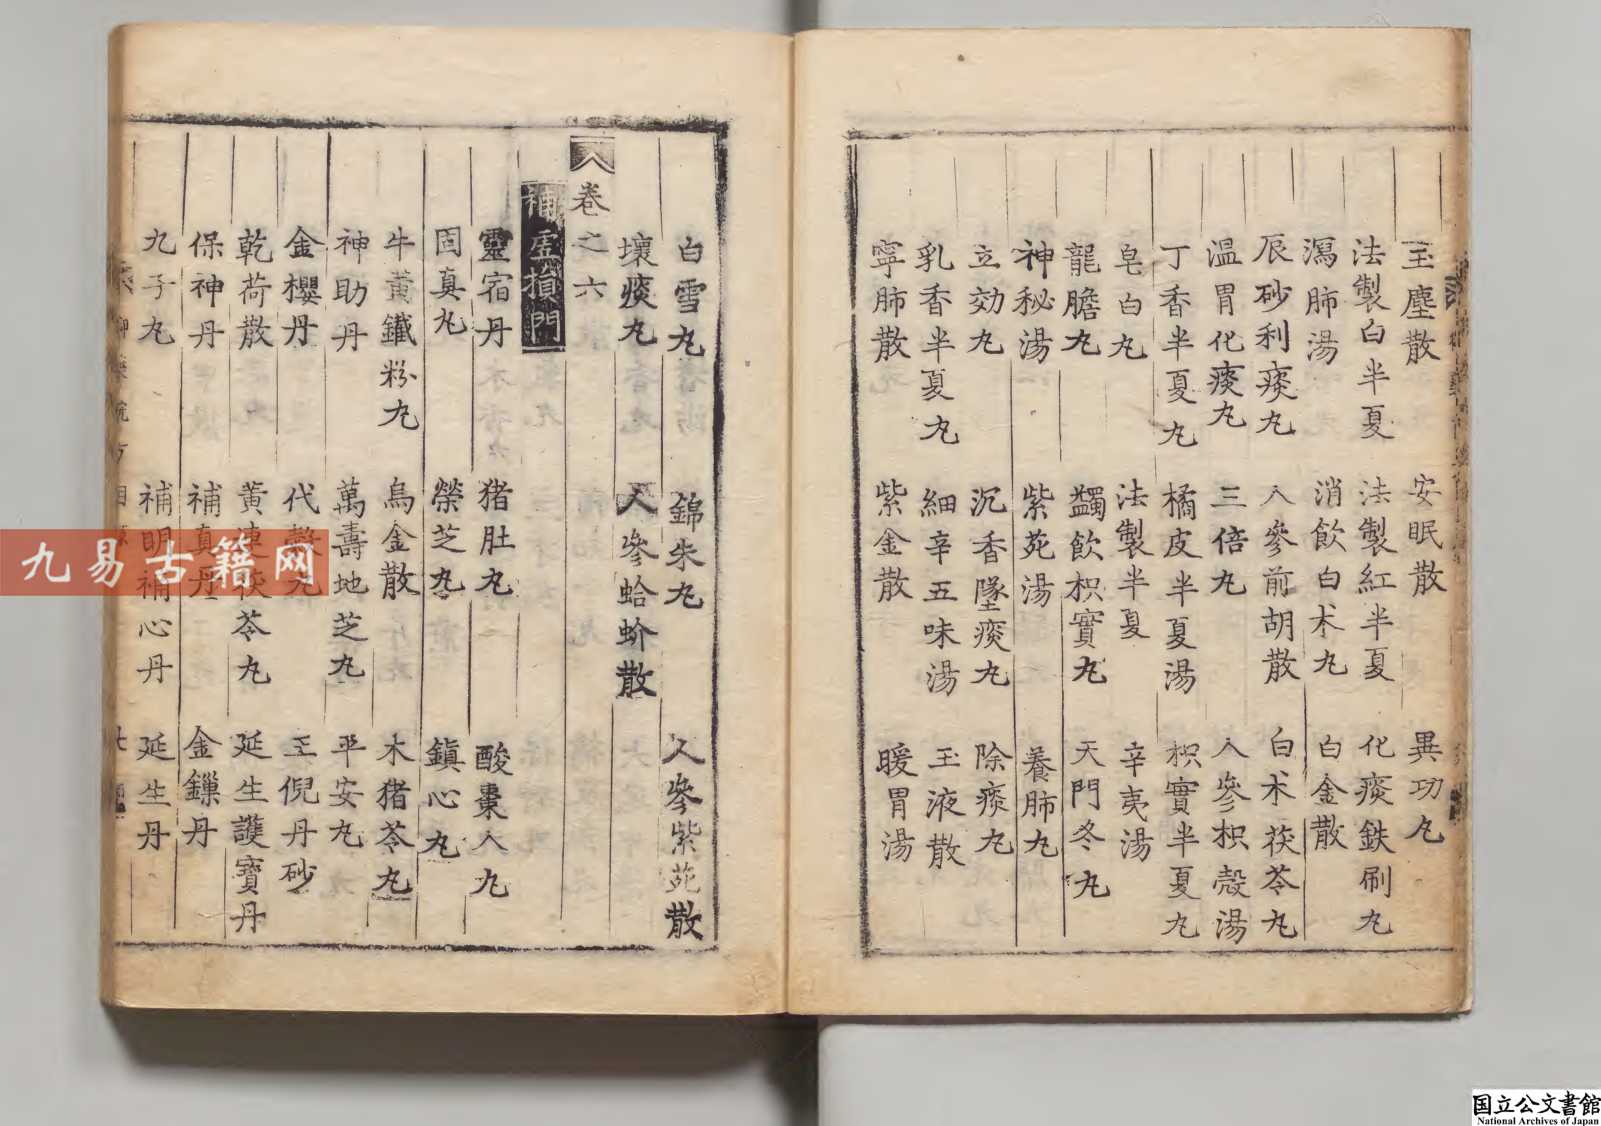 玉塵散　安眠散　異功丸
法製白半夏　法製紅半夏　化痰鉄刷丸
瀉肺湯　消飲白朮丸　白金散
辰砂利痰丸　人參前胡散　白朮茯苓丸
温胃化痰丸　三倍丸　人參枳殼湯
丁香半夏丸　橘皮半夏湯　枳實半夏丸
皂白丸　法製半夏　辛夷湯
龍膽丸　蠲飲枳實丸　天門冬丸
神秘湯　紫苑湯　養肺丸
立効丸　沉香墜痰丸　除痰丸
乳香半夏丸　細辛五味湯　玉液散
寧肺散　紫金散　暖胃湯
白雪丸　錦朱丸　人參紫苑散
壞痰丸　人參蛤蚧散
卷之六
補虛損門
靈宿丹　猪肚丸　酸棗人丸
固真丸　榮芝丸　鎮心丸
牛黃鐵粉丸　烏金散　木猪苓丸
神助丹　萬壽地芝丸　平安丸
金櫻丹　代　丸　王倪丹砂
乾荷散　黃連茯苓丸　延生護寶丹
保神丹　補真丹　金鏁丹
九子丸　補明補心丹　延生丹
御藥院方目
九易古籍网
国立公文書館
National Archives of Japan